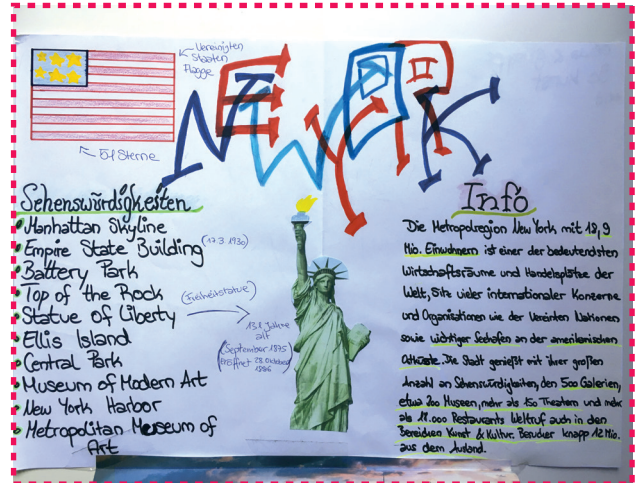 Vereinigten
Staaten
Flagge
NEW YORK
51 Sterne
Sehenswürdigkeiten
Manhattan Skyline
Empire State Building (17.3.1930)
Battery Park
Top of the Rock
Statue of Liberty
(Freiheitsstatue)
Ellis Island
Central Park
Museum of Modern Art
New York Harbor
Metropolitan Museum of
Art
131 Jahre
alt
(September 1875
eröffnet 28 Oktober
1886)
Info
Die Metropolregion New York mit 18,9
Mio. Einwohnern ist einer der bedeutendsten
Wirtschaftsräume und Handelsplätze der
Welt, Sitz vieler internationaler Konzerne
und Organisationen wie der Vereinten Nationen
sowie wichtiger Seehafen an der amerikanischen
Ostküste. Die Stadt genießt mit ihrer großen
Anzahl an Sehenswürdigkeiten, den 500 Galerien,
etwa 200 Museen, mehr als 150 Theatern und mehr
als 18.000 Restaurants Weltruf auch in den
Bereichen Kunst & Kultur. Besucher knapp 12 Mio.
aus dem Ausland.